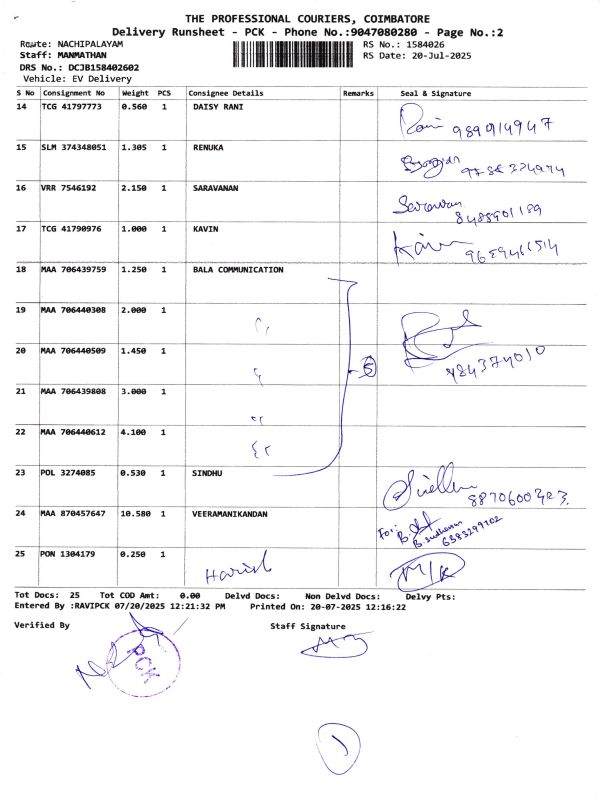 THE PROFESSIONAL COURIERS, COIMBATORE
Delivery Runsheet - PCK - Phone No.:9047080280 - Page No.:2
Route: NACHIPALAYAM RS No.: 1584026
Staff: MANMATHAN RS Date: 20-Jul-2025
DRS No.: DCJB158402602
Vehicle: EV Delivery
S No Consignment No Weight PCS Consignee Details Remarks Seal & Signature
14 TCG 41797773 0.560 1 DAISY RANI
Rani 989014947
15 SLM 374348051 1.305 1 RENUKA
16 VRR 7546192 2.150 1 SARAVANAN
Saravanan
8488901189
17 TCG 41790976 1.000 1 KAVIN
Kavin
18 MAA 706439759 1.250 1 BALA COMMUNICATION
19 MAA 706440308 2.000 1 "
20 MAA 706440509 1.450 1 " 5
984374010
21 MAA 706439808 3.000 1 "
22 MAA 706440612 4.100 1 "
23 POL 3274085 0.530 1 SINDHU
24 MAA 870457647 10.580 1 VEERAMANIKANDAN
For:
B. Sudharan
6383299702
25 PON 1304179 0.250 1
Harish
Tot Docs: 25 Tot COD Amt: 0.00 Delvd Docs: Non Delvd Docs: Delvy Pts:
Entered By :RAVIPCK 07/20/2025 12:21:32 PM Printed On: 20-07-2025 12:16:22
Verified By Staff Signature
PCK
1